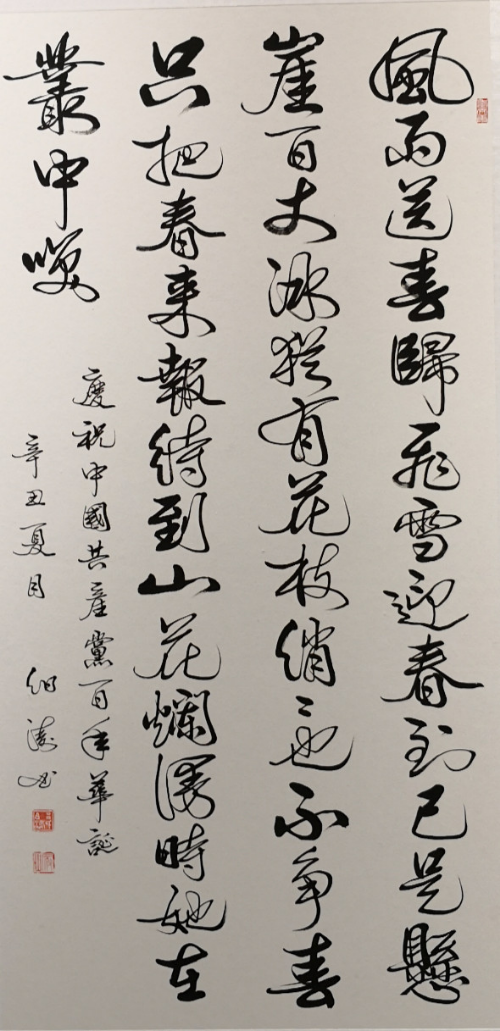 風雨送春歸飛雪迎春到已是懸
崖百丈冰猶有花枝俏〻也不争春
只把春来報待到山花爛漫時她在
叢中咲
慶祝中國共產黨百年華誕
辛丑夏月